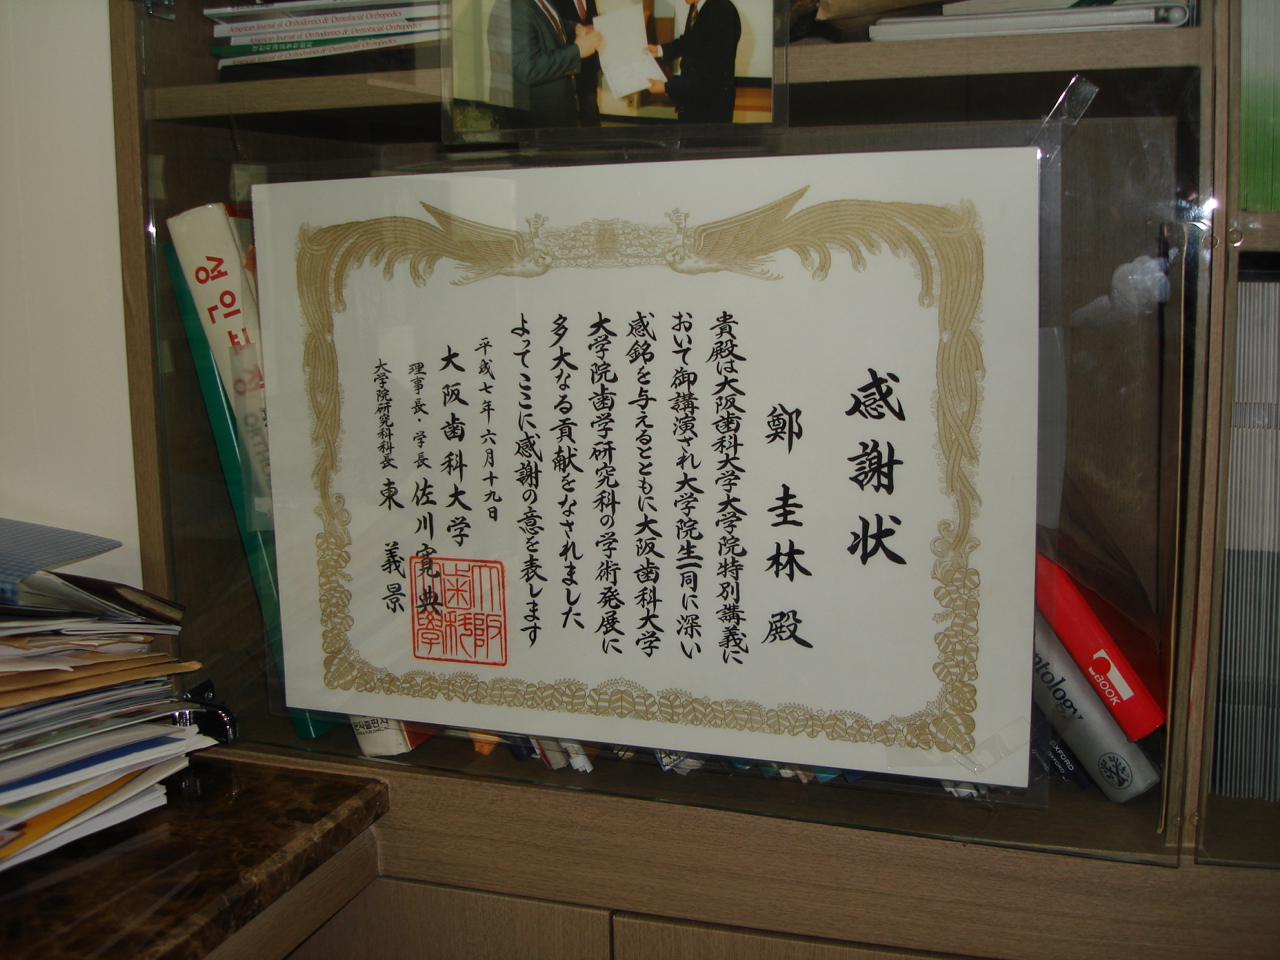 American Journal of Orthodontics & Dentofacial Orthopedics
American Journal of Orthodontics & Dentofacial Orthopedics
American Journal of Orthodontics & Dentofacial Orthopedics
感謝状
鄭圭林殿
貴殿は大阪歯科大学大学院特別講義に
おいて御講演され大学院生一同に深い
感銘を与えるとともに大阪歯科大学
大学院歯学研究科の学術発展に
多大なる貢献をなされました
よってここに感謝の意を表します
平成七年六月十九日
大阪歯科大学
理事長・学長 佐川寛典
大学院研究科科長 東義景
大阪
歯科
大學
성인교정
BOOK
ntology
OXFORD